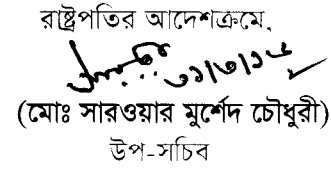 রাষ্ট্রপতির আদেশক্রমে,
৩১/৩/১৫
(মোঃ সারওয়ার মুর্শেদ চৌধুরী)
উপ-সচিব